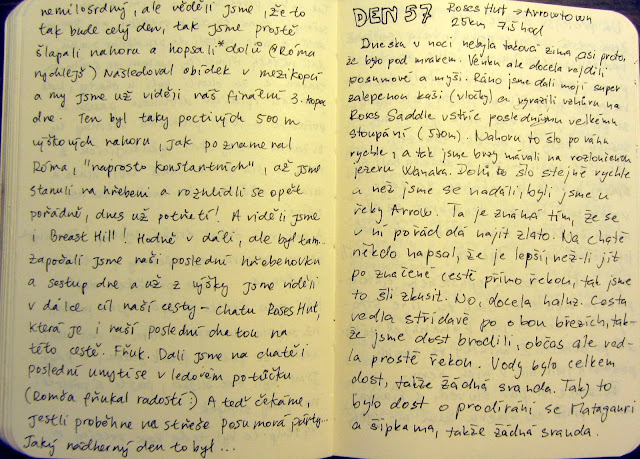 nemilosrdný, ale věděli jsme, že to
tak bude celý den, tak jsme prostě
šlapali nahoru a hopsali* dolů (*Róma
rychlejš) Následoval obídek v mezikopcí
a my jsme už viděli náš finální 3. kopec
dne. Ten byl taky poctivých 500 m
výškových nahoru, jak poznamenal
Róma, "naprosto konstantních", až jsme
stanuli na hřebeni a rozhlídli se opět
pořádně, dnes už potřetí! A viděli jsme
i Breast Hill! Hodně v dáli, ale byl tam...
započali jsme naši poslední hřebenovku
a sestup dne a už z výšky jsme viděli
v dálce cíl naší cesty - chatu Roses Hut,
která je i naší poslední chatou na
této cestě. Fňuk. Dali jsme na chatě i
poslední umytí se v ledovém potůčku
(Romča fňukal radostí :) A teď čekáme,
jestli proběhne na střeše posumová párty...
Jaký nádherný den to byl...
DEN 57
Roses Hut → Arrowtown
25km 7,5 hod
Dneska v noci nebyla taková zima, asi proto,
že bylo pod mrakem. Venku ale docela rejdili
posumové a myši. Ráno jsme dali moji super
zalepenou kaši (vločky) a vyrazili vzhůru na
Roses Saddle vstříc poslednímu velkému
stoupání (520m). Nahoru to šlo po ránu
rychle, a tak jsme brzy mávali na rozloučenou
jezeru Wanaka. Dolů to šlo stejně rychle
a než jsme se nadáli, byli jsme u
řeky Arrow. Ta je známá tím, že se
v ní pořád dá najít zlato. Na chatě
někdo napsal, že je lepší, než-li jít
po značené cestě přímo řekou, tak jsme
to šli zkusit. No, docela haluz. Cesta
vedla střídavě po obou březích, tak-
že jsme dost brodili, občas ale ved-
la prostě řekou. Vody bylo celkem
dost, takže žádná sranda. Taky to
bylo dost o prodírání se Matagauri
a šípkama, takže žádná sranda.